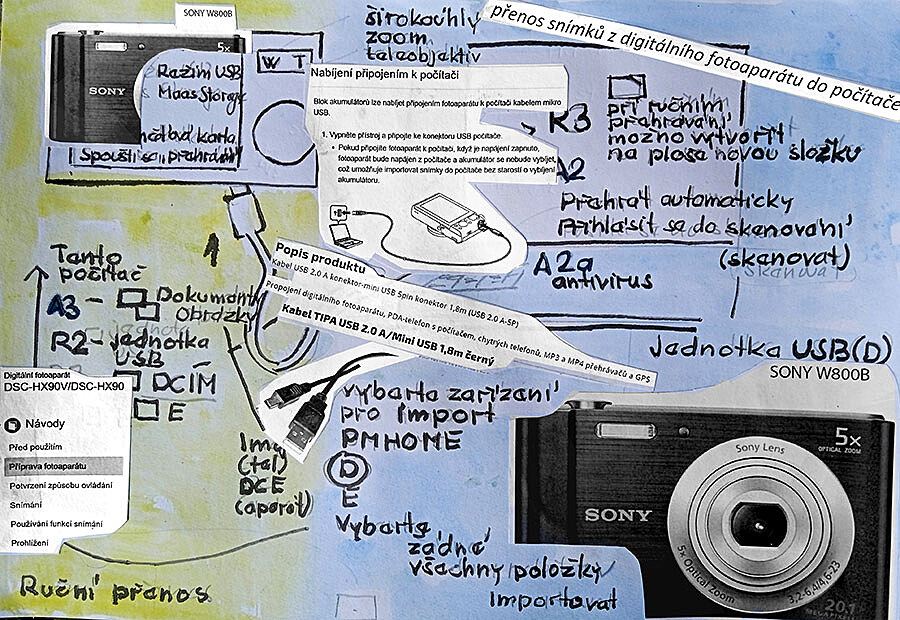 SONY W800B
širokoúhlý
zoom
teleobjektiv
přenos snímků z digitálního fotoaparátu do počítače
5x
SONY
Režim USB
Mass Storage
karta
Spoušť
W T
Nabíjení připojením k počítači
Blok akumulátorů lze nabíjet připojením fotoaparátu k počítači kabelem mikro
USB.
1. Vypněte přístroj a připojte ke konektoru USB počítače.
• Pokud připojíte fotoaparát k počítači, když je napájení zapnuto,
fotoaparát bude napájen z počítače a akumulátor se nebude vybíjet,
což umožňuje importovat snímky do počítače bez starostí o vybíjení
akumulátoru.
R3
při ručním
přehrávání
možno vytvořit
na ploše novou složku
A2
Přehrát automaticky
Přihlásit se do skenování
(skenovat)
A2a
antivirus
Popis produktu
Kabel USB 2.0 A konektor-mini USB 5pin konektor 1,8m (USB 2.0 A-5P)
Propojení digitálního fotoaparátu, PDA-telefon s počítačem, chytrých telefonů, MP3 a MP4 přehrávačů a GPS
Kabel TIPA USB 2.0 A/Mini USB 1,8m černý
Tento
počítač
A3 - Dokumenty
Obrázky
R2 - jednotka
USB
DCIM
E
Digitální fotoaparát
DSC-HX90V/DSC-HX90
Návody
Před použitím
Příprava fotoaparátu
Potvrzení způsobu ovládání
Snímání
Používání funkcí snímání
Prohlížení
(tel)
DCE
(aparát)
Vyberte zařízení
pro import
PMHOME
D
E
Vyberte
žádné
všechny položky
importovat
Jednotka USB(D)
SONY W800B
5x
OPTICAL ZOOM
Sony Lens
SONY
5x Optical Zoom
3,2-6,4/4,6-23
20.1
MEGA PIXELS
Ruční přenos